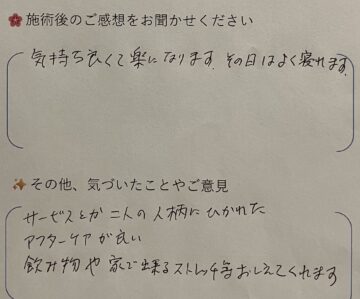 🌸施術後のご感想をお聞かせください
気持ち良くて楽になります。その日はよく寝れます。
✨その他、気づいたことやご意見
サービスとか二人の人柄にひかれた
アフターケアが良い
飲み物や家で出来るストレッチ等おしえてくれます